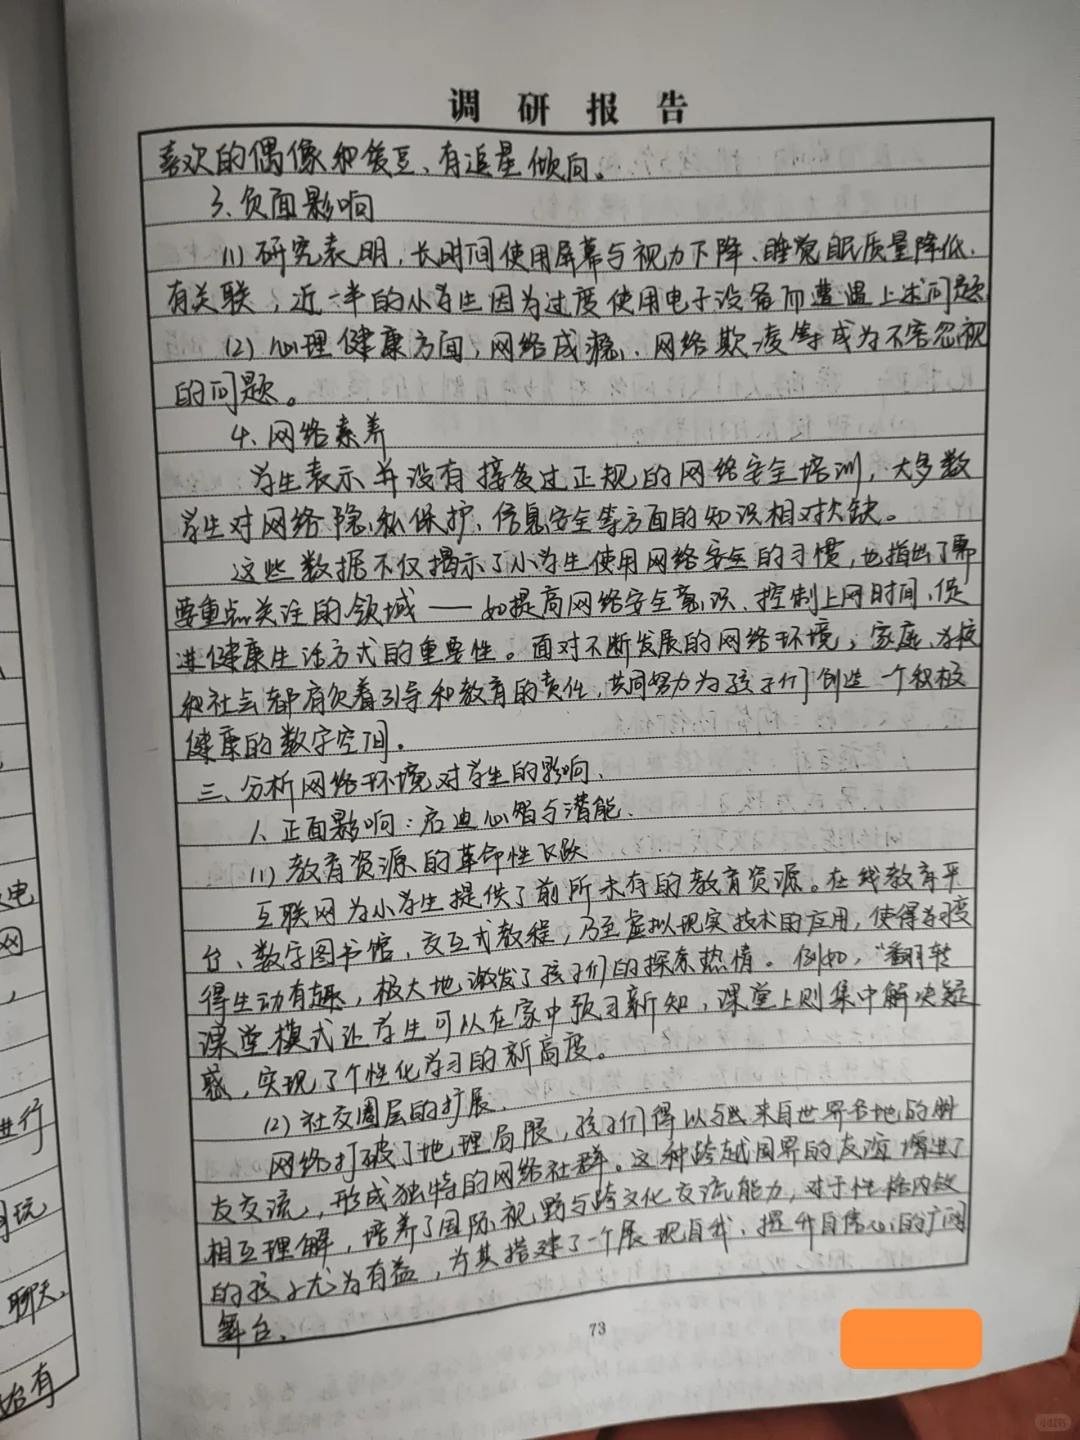 调研报告
喜欢的偶像和爱豆、有追星倾向。
3、负面影响
(1) 研究表明，长时间使用屏幕与视力下降、睡觉眠质量降低、
有关联，近一半的小学生因为过度使用电子设备而遭遇上述问题
(2) 心理健康方面，网络成瘾、网络欺凌等成为不容忽视
的问题。
4、网络素养
学生表示并没有接受过正规的网络安全培训，大多数
学生对网络隐私保护、信息安全等方面的知识相对欠缺。
这些数据不仅揭示了小学生使用网络安全的习惯，也指出了需
要重点关注的领域——如提高网络安全意识、控制上网时间、促
进健康生活方式的重要性。面对不断发展的网络环境，家庭、学校
和社会都肩负着引导和教育的责任，共同努力为孩子们创造一个积极
健康的数字空间。
三、分析网络环境对学生的影响、
1、正面影响：启迪心智与潜能、
(1) 教育资源的革命性飞跃
互联网为小学生提供了前所未有的教育资源。在线教育平
台、数字图书馆、交互式教程，乃至虚拟现实技术的应用，使得学习变
得生动有趣，极大地激发了孩子们的探索热情。例如，“翻转
课堂模式让学生可以在家中预习新知，课堂上则集中解决疑
惑，实现了个性化学习的新高度。
(2) 社交圈层的扩展、
网络打破了地理局限，孩子们得以与来自世界各地的朋
友交流，形成独特的网络社群。这种跨越国界的友谊增进了
相互理解，培养了国际视野与跨文化交流能力，对于性格内敛
的孩子尤为有益，为其搭建了一个展现自我、提升自信心的广阔
舞台、
73
电
网
，
进行
玩
聊天、
有